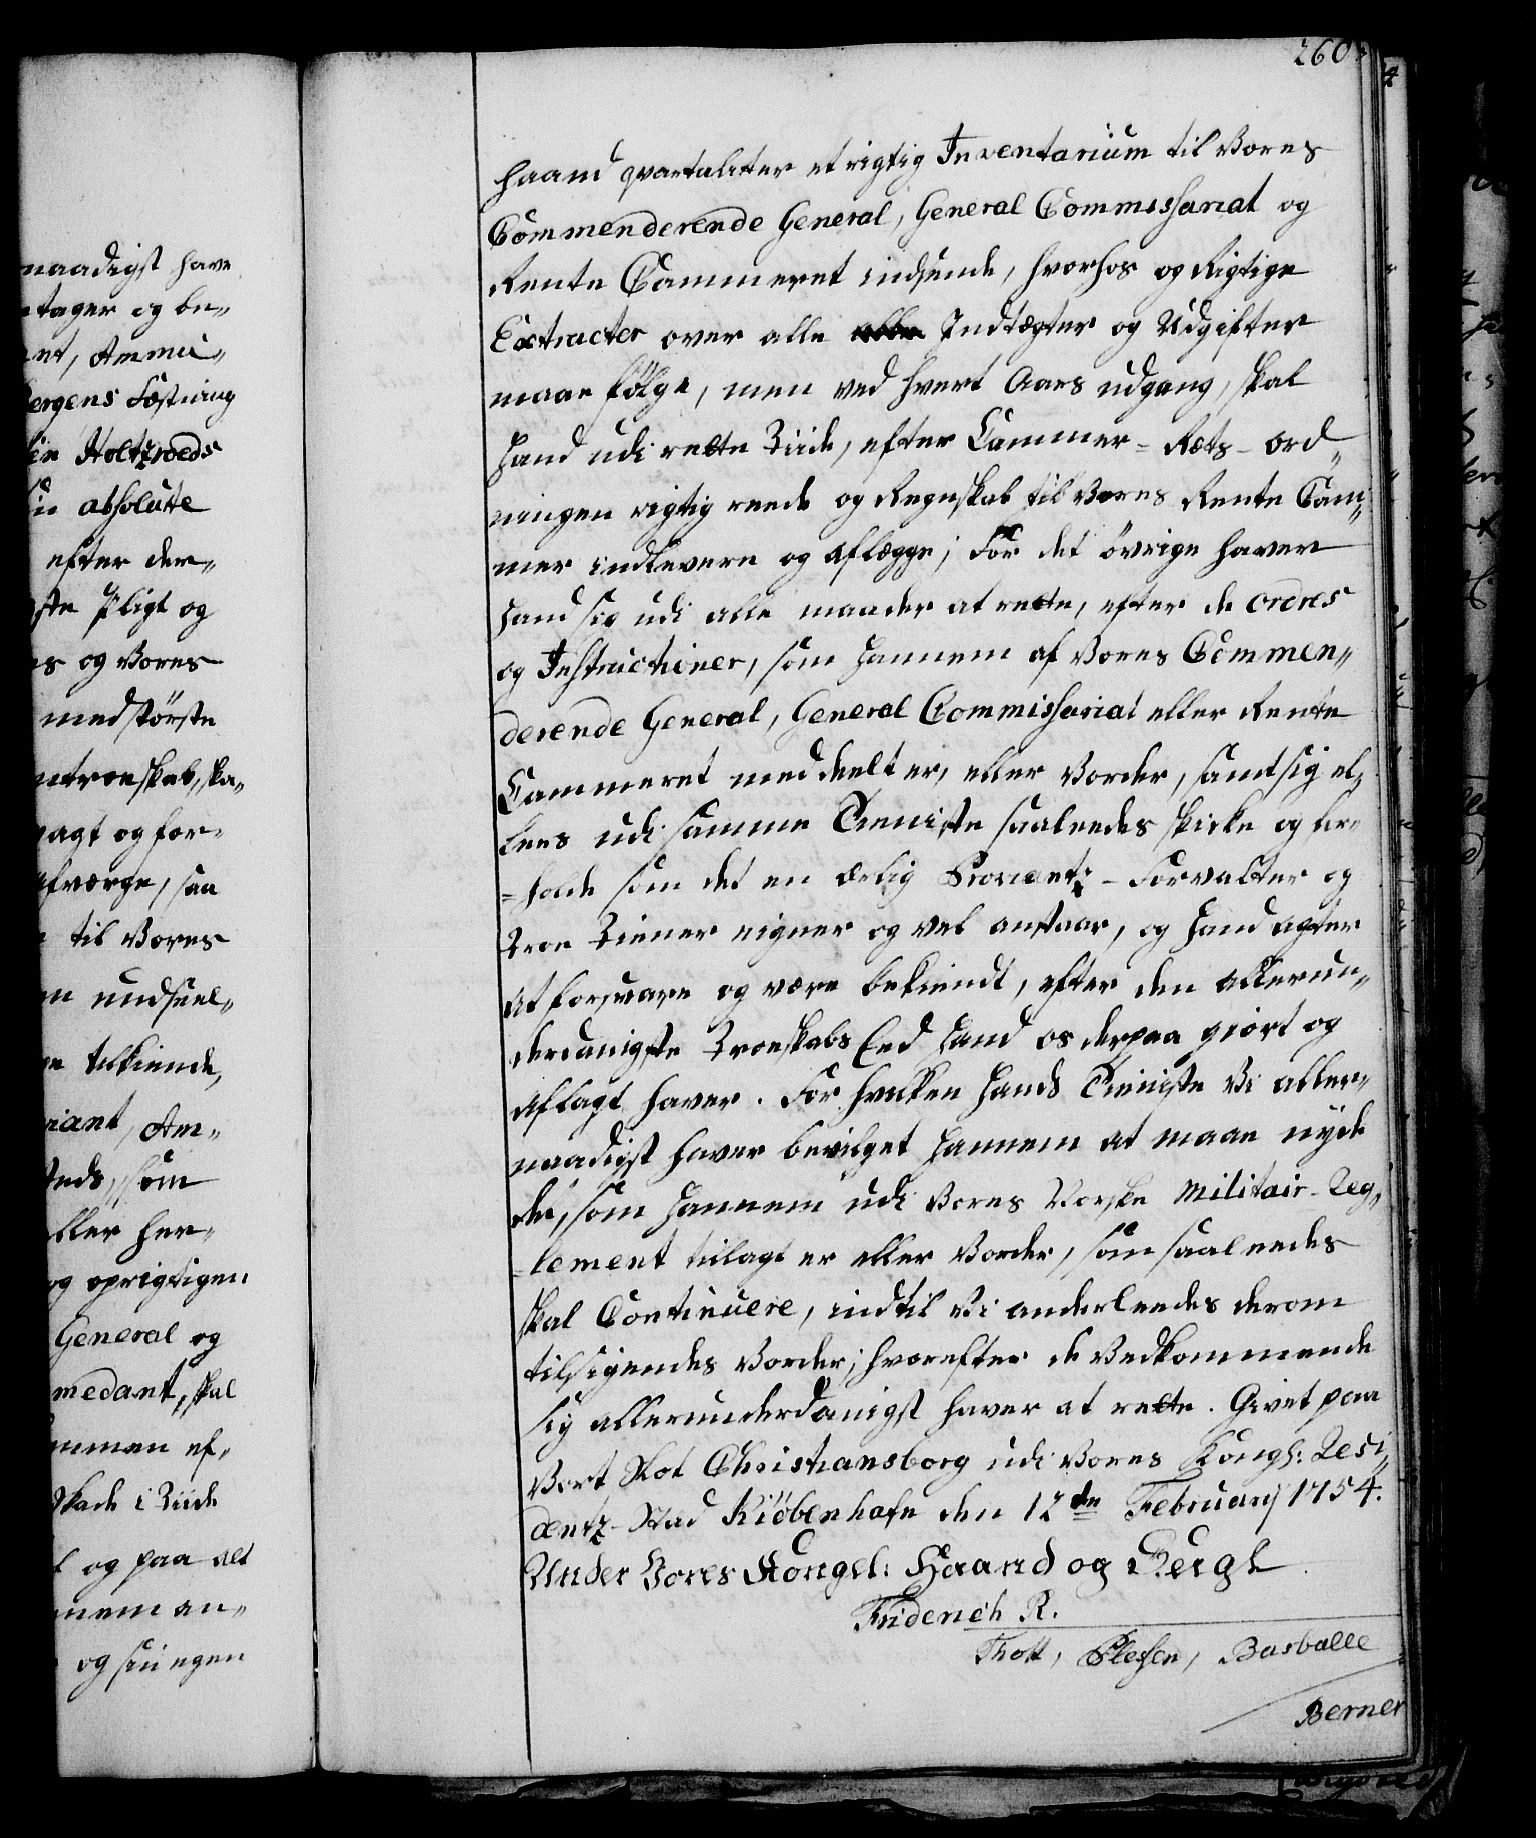 260.
haand qvartaliter et rigtig Inventarium til Vores
Commenderende General, General Commissariat og
Rente Cammeret indsende, hvorhos og Rigtige
Extracter over alle Indtægter og Udgifter
maae følge, men ved hvert Aars udgang, skal
hand udi rette Tiide, efter Cammer-Rets-Ord„
ningen rigtig reede og Regnskab til Vores Rente Cam„
mer indlevere og aflægge; For det øvrige haver
hand sig udi alle maader at rette, efter de ordres
og Instructioner, som hannem af Vores Commen„
derende General, General Commissariat eller Rente
Cammeret meddeelt er, eller Vorder, samt sig el„
lers udi samme Tieniste saaleedes skicke og for„
=holde som det en ærlig Proviantz-Forvalter og
Troe Tiener eigner og vel anstaar, og hand agter
at forsvare og være bekiendt, efter den allerun„
derdanigste Troeskabs Eed hand os derpaa giort og
aflagt haver. For hvilken hands Tieniste Vi aller„
naadigst haver bevilget hannem at maae nyde
det, som hannem udi Vores Norske Militair-Reg„
=lement tillagt er eller Vorder, som saaleedes
skal Continuere, indtil Vi anderleedes derom
tilsigendes Vorder; hvorefter de Vedkommende
sig allerunderdanigst haver at rette. Givet paa
Vort Slot Christiansborg udi Vores Kongl: Resi„
dentz-Stad Kiöbenhafn den 12te February 1754.
Under Vores Kongel: Haand og Seigl
Friderich R.
Thott, Plessen, Basballe
Berner
naadigst have
tager og be„
nt, Ammu„
ergens Fæstning
Holtzroeds
absolutte
efter der„
ste Pligt og
s og Vores
med største
ntroeskab, ska„
agt og for„
fværge, saa
til Vores
undseel„
tilkiende,
iant, Am„
steds, som
ller her„
og oprigtigen
General og
medant, skal
mmen ef„
Skade i Tiide
og paa alt
nem an„
og siu egen